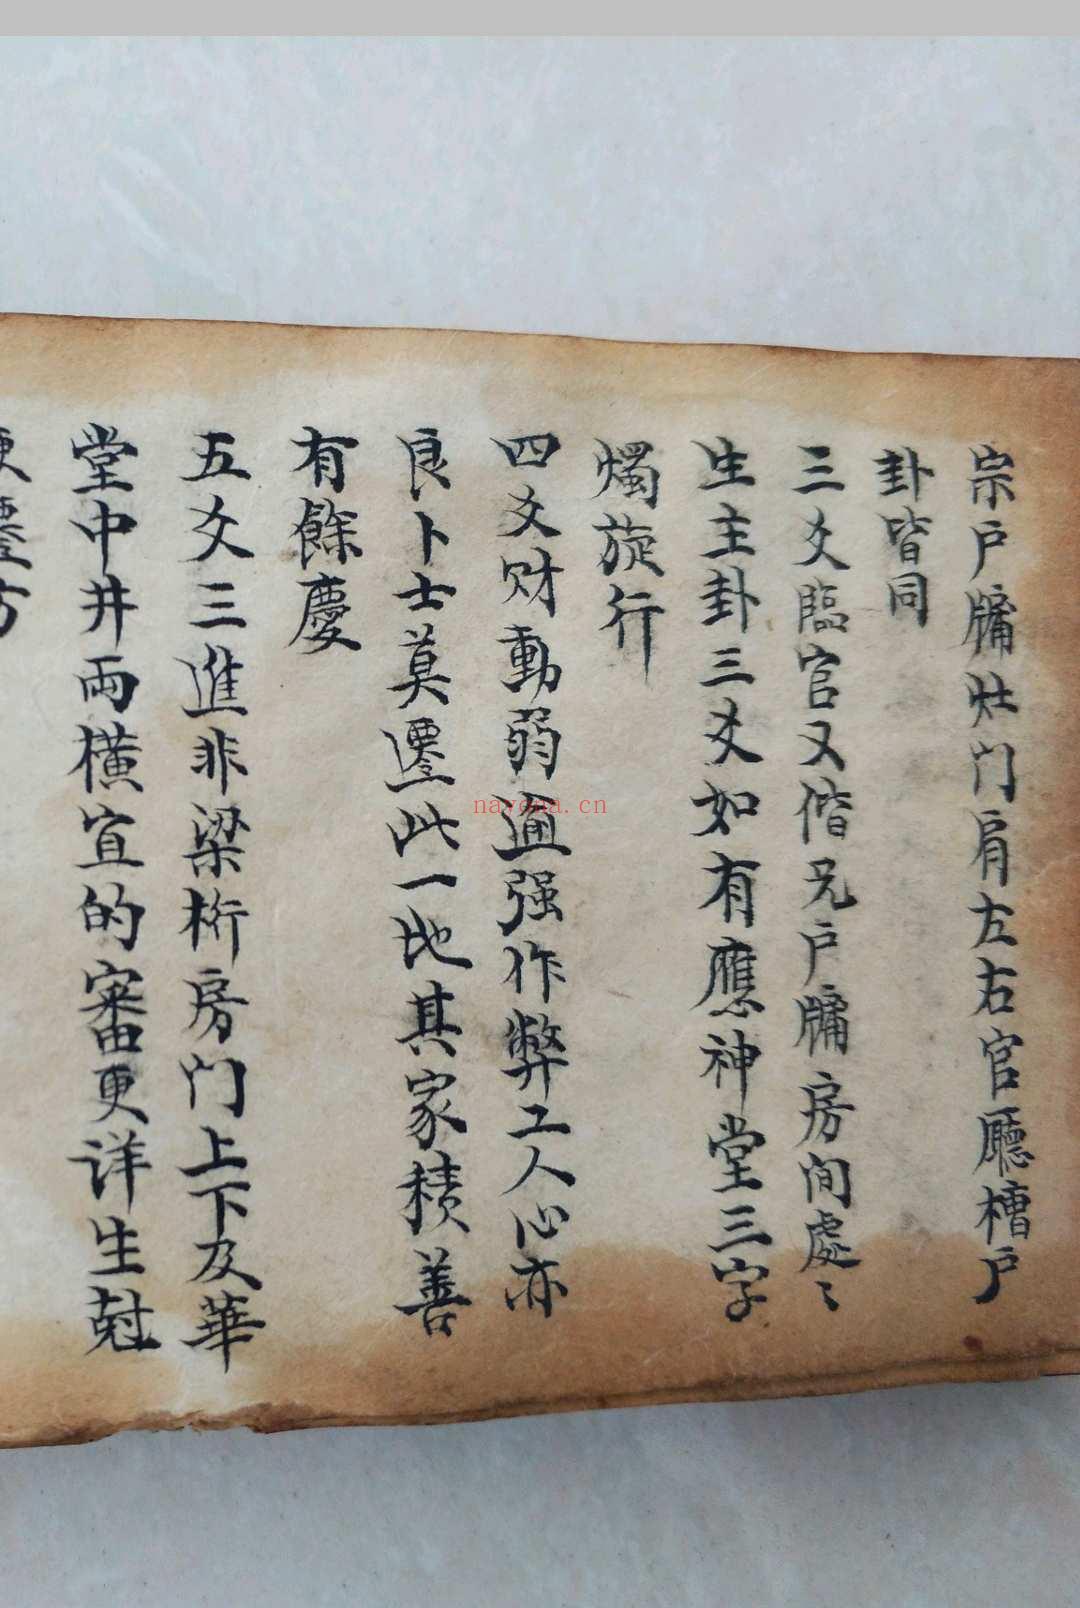 宗戶牖灶门肩左右官廳槽戶
卦皆同
三爻臨官又偕兄戶牖房间處〻
生主卦三爻如有應神堂三字
燭旋行
四爻财動弱逾强作弊工人心亦
良卜士莫遷此一地其家積善
有餘慶
五爻三進非梁桁房门上下及華
堂中井両橫宜的審更详生尅
nayona.cn